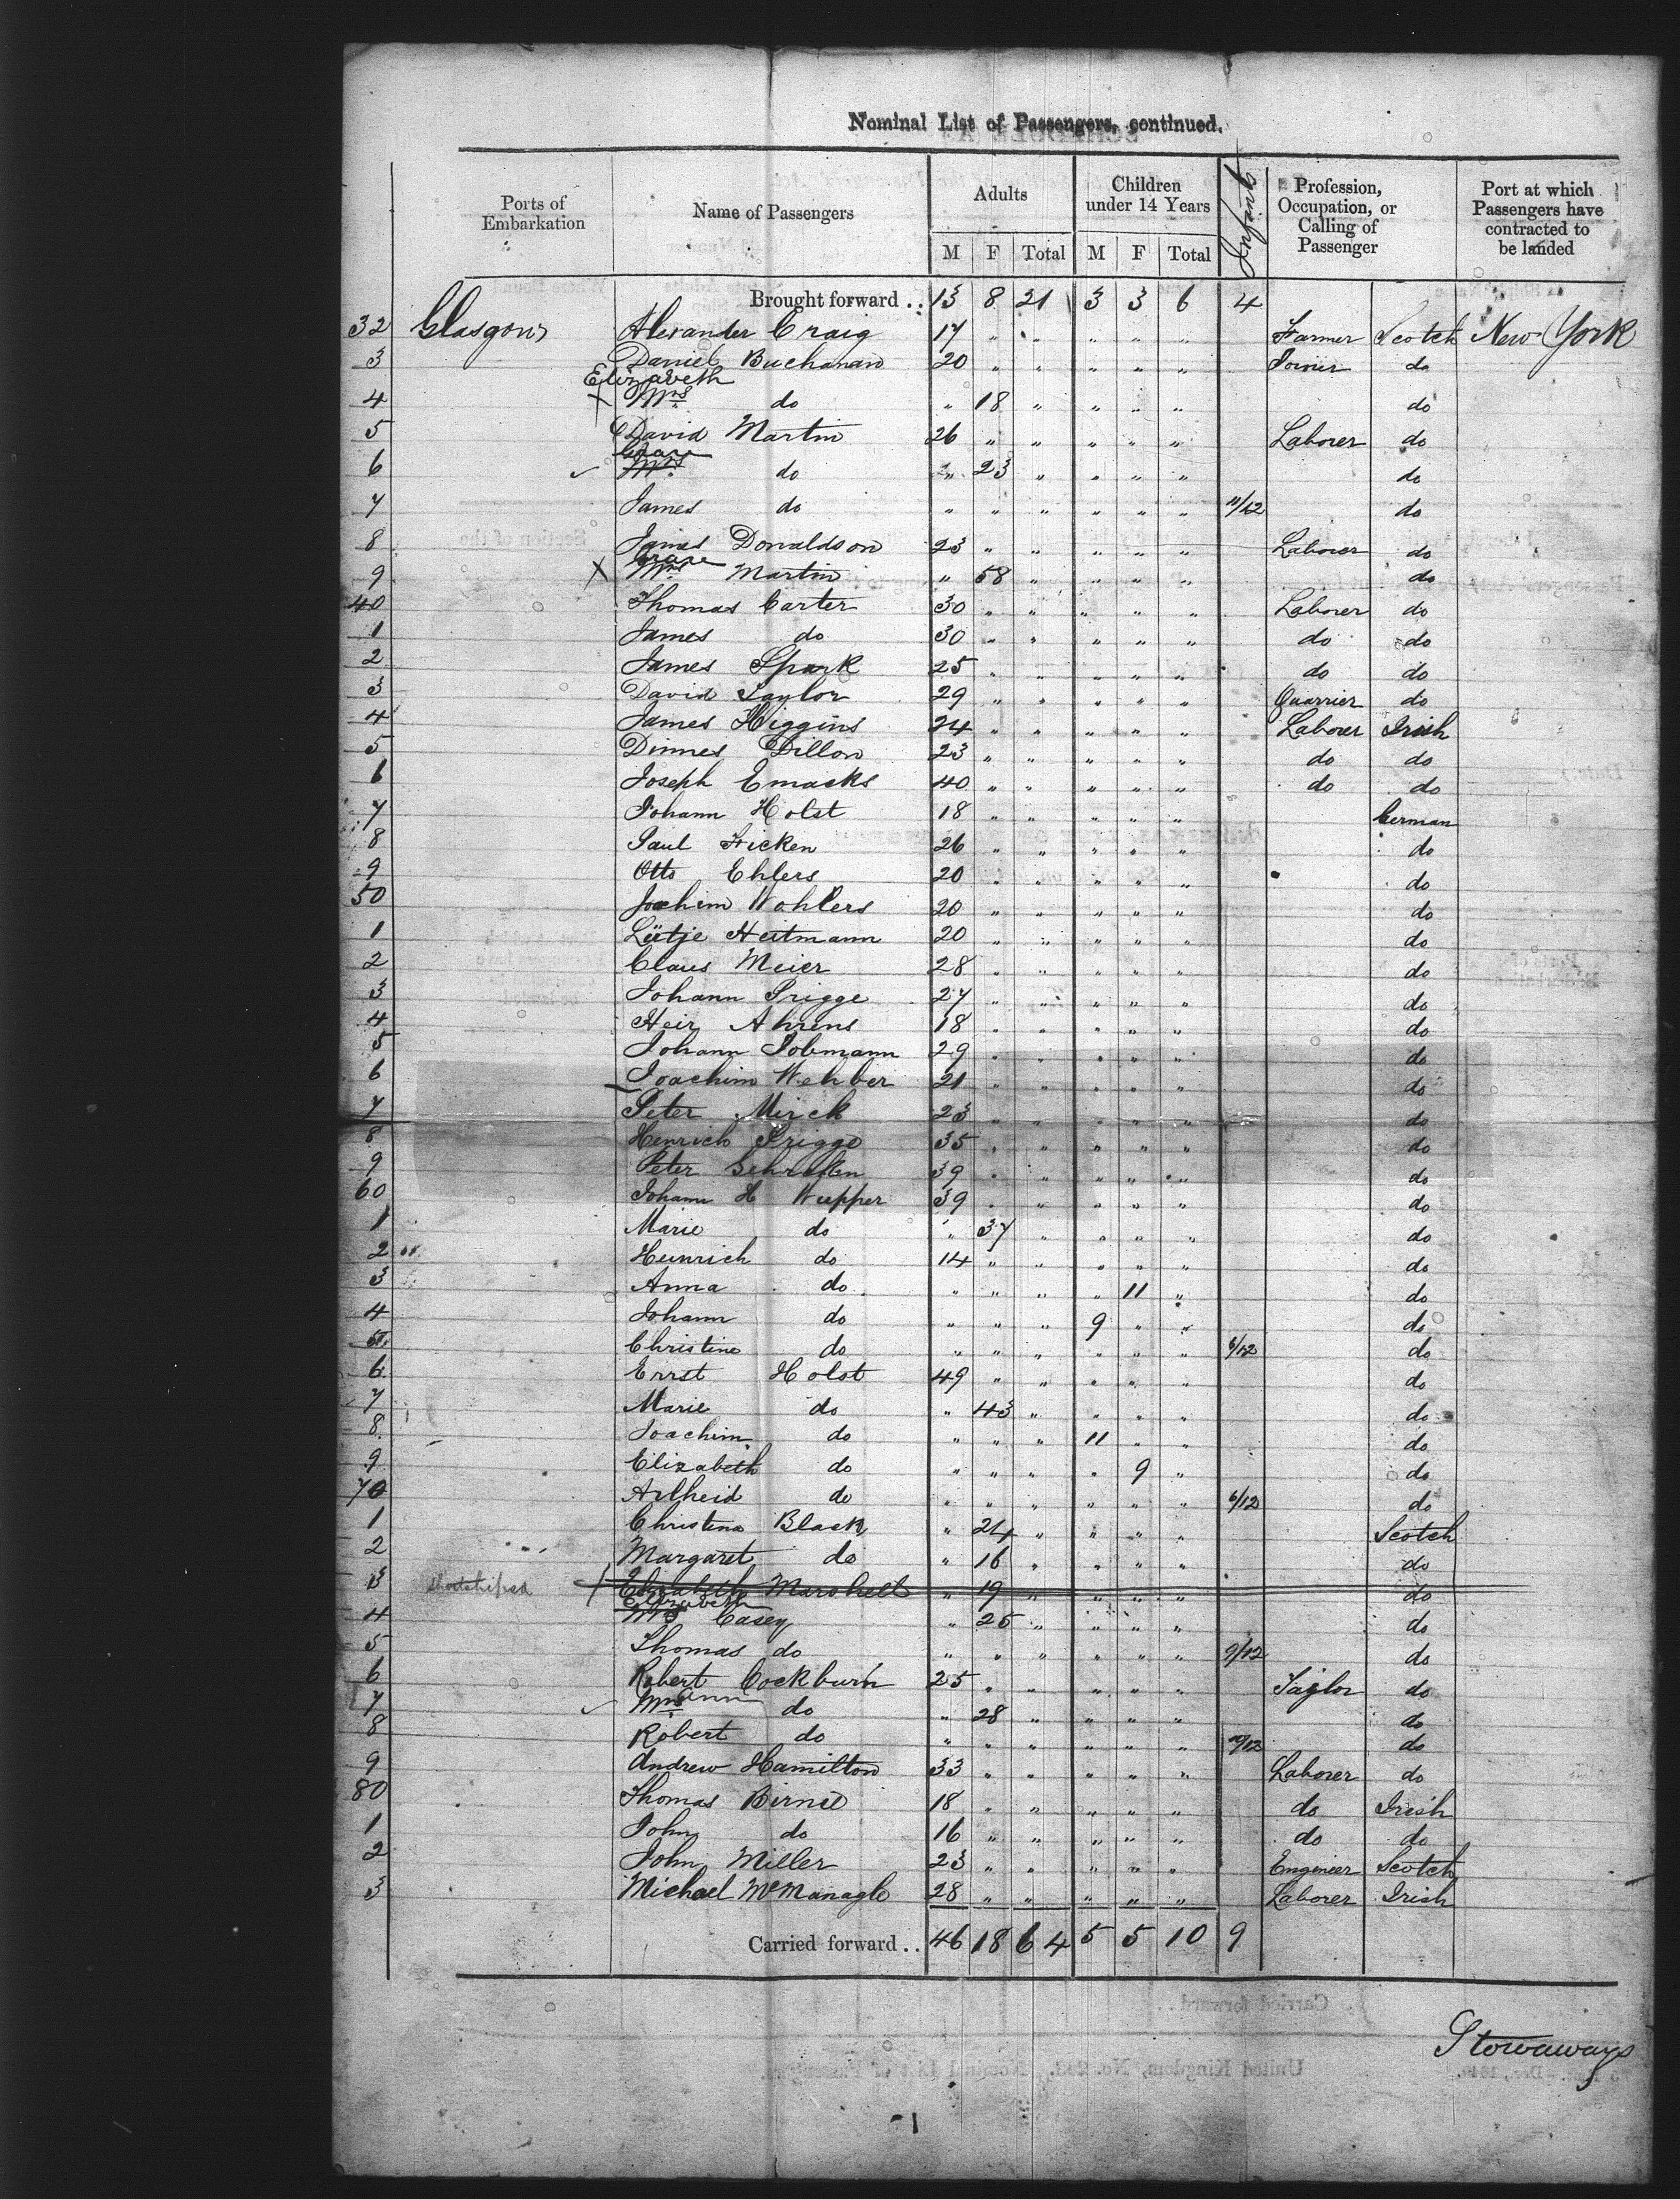 Nominal List of Passengers, continued.
Ports of Embarkation | Name of Passengers | Adults M F Total | Children under 14 Years M F Total | Profession, Occupation, or Calling of Passenger | Port at which Passengers have contracted to be landed
Brought forward .. 13 8 21 3 3 6 4
32 Glasgow Alexander Craig 17 " " " " " Farmer Scotch New York
3 Daniel Buchanan 20 " " " " " Joiner do
Elizabeth
4 x Mrs do " 18 " " " " do
5 David Martin 26 " " " " " Laborer do
Grace
6 ✓ Mrs do " 23 " " " " do
7 James do " " " " " " 11/12 do
8 James Donaldson 23 " " " " " Laborer do
Grace
9 X Mrs Martin " 58 " " " " do
40 Thomas Carter 30 " " " " " Laborer do
1 James do 30 " " " " " do do
2 James Spark 25 " " " " " do do
3 David Taylor 29 " " " " " Quarrier do
4 James Higgins 24 " " " " " Laborer Irish
5 Dinnes Dillon 23 " " " " " do do
6 Joseph Emacks 40 " " " " " do do
7 Johann Holst 18 " " " " " German
8 Paul Ficken 26 " " " " " do
9 Otto Ehlers 20 " " " " " do
50 Joachim Wohlers 20 " " " " " do
1 Lütje Heitmann 20 " " " " " do
2 Claus Meier 28 " " " " " do
3 Johann Prigge 27 " " " " " do
4 Heir Ahrens 18 " " " " " do
5 Johann Tobmann 29 " " " " " do
6 Joachim Wehber 21 " " " " " do
7 Peter Mirck 23 " " " " " do
8 Henrich Prigge 35 " " " " " do
9 Peter 39 " " " " " do
60 Johann H Wupper 39 " " " " " do
1 Marie do " 37 " " " " do
2 Heinrich do 14 " " " " " do
3 Anna do " " " " 11 " do
4 Johann do " " " 9 " " do
5 Christine do " " " " " " 6/12 do
6 Errst Holst 49 " " " " " do
7 Marie do " 43 " " " " do
8 Joachim do " " " 11 " " do
9 Elizabeth do " " " " 9 " do
70 Arlheid do " " " " " " 6/12 do
1 Christina Black " 24 " " " " Scotch
2 Margaret do " 16 " " " " do
3 Shortshipped Elizabeth Marshell " 19 " " " " do
Elizabeth
4 Mrs Casey " 25 " " " " do
5 Thomas do " " " " " " 9/12 do
6 Robert Cockburn 25 " " " " " Taylor do
7 ✓ Mrs Ann do " 28 " " " " do
8 Robert do " " " " " " do
9 Andrew Hamilton 33 " " " " " Laborer do
80 Thomas Birnie 18 " " " " " do Irish
1 John do 16 " " " " " do do
2 John Miller 23 " " " " " Engineer Scotch
3 Michael McManagle 28 " " " " " Laborer Irish
Carried forward .. 46 18 64 5 5 10 9
Stowaways